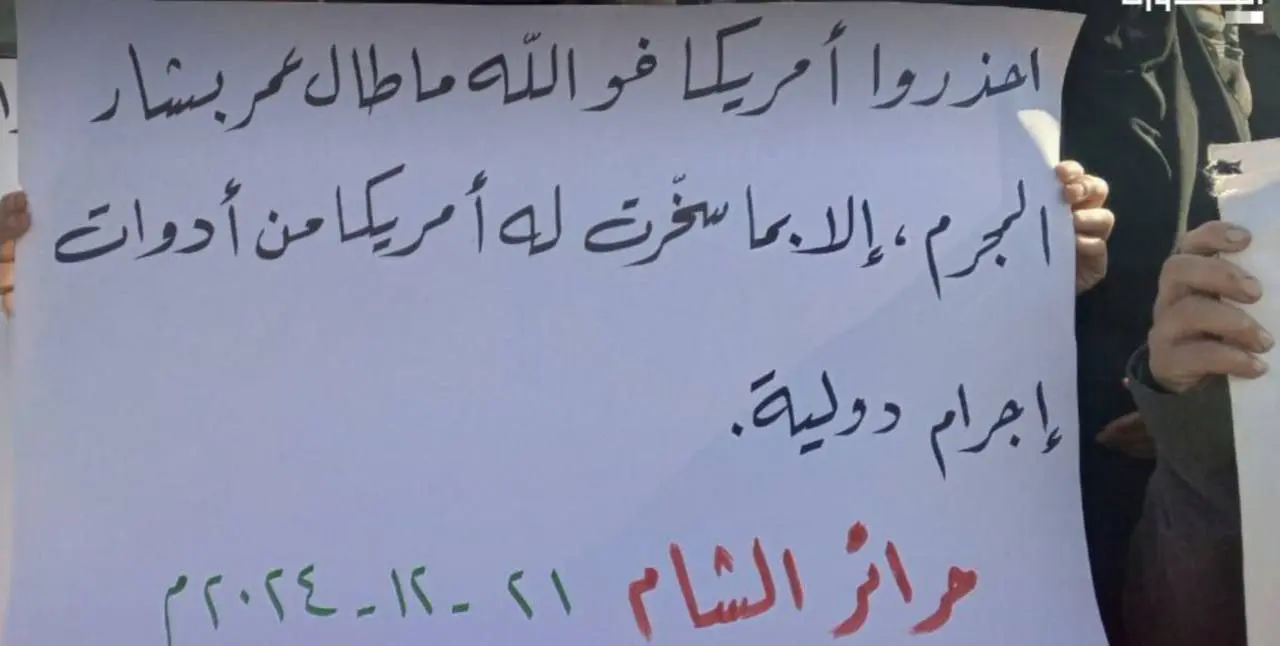 احذروا أمريكا فو اللّه ما طال عمر بشار
المجرم، إلا بما سخّرت له أمريكا من أدوات
إجرام دولية.
حرائر الشام ٢١ - ١٢ - ٢٠٢٤م